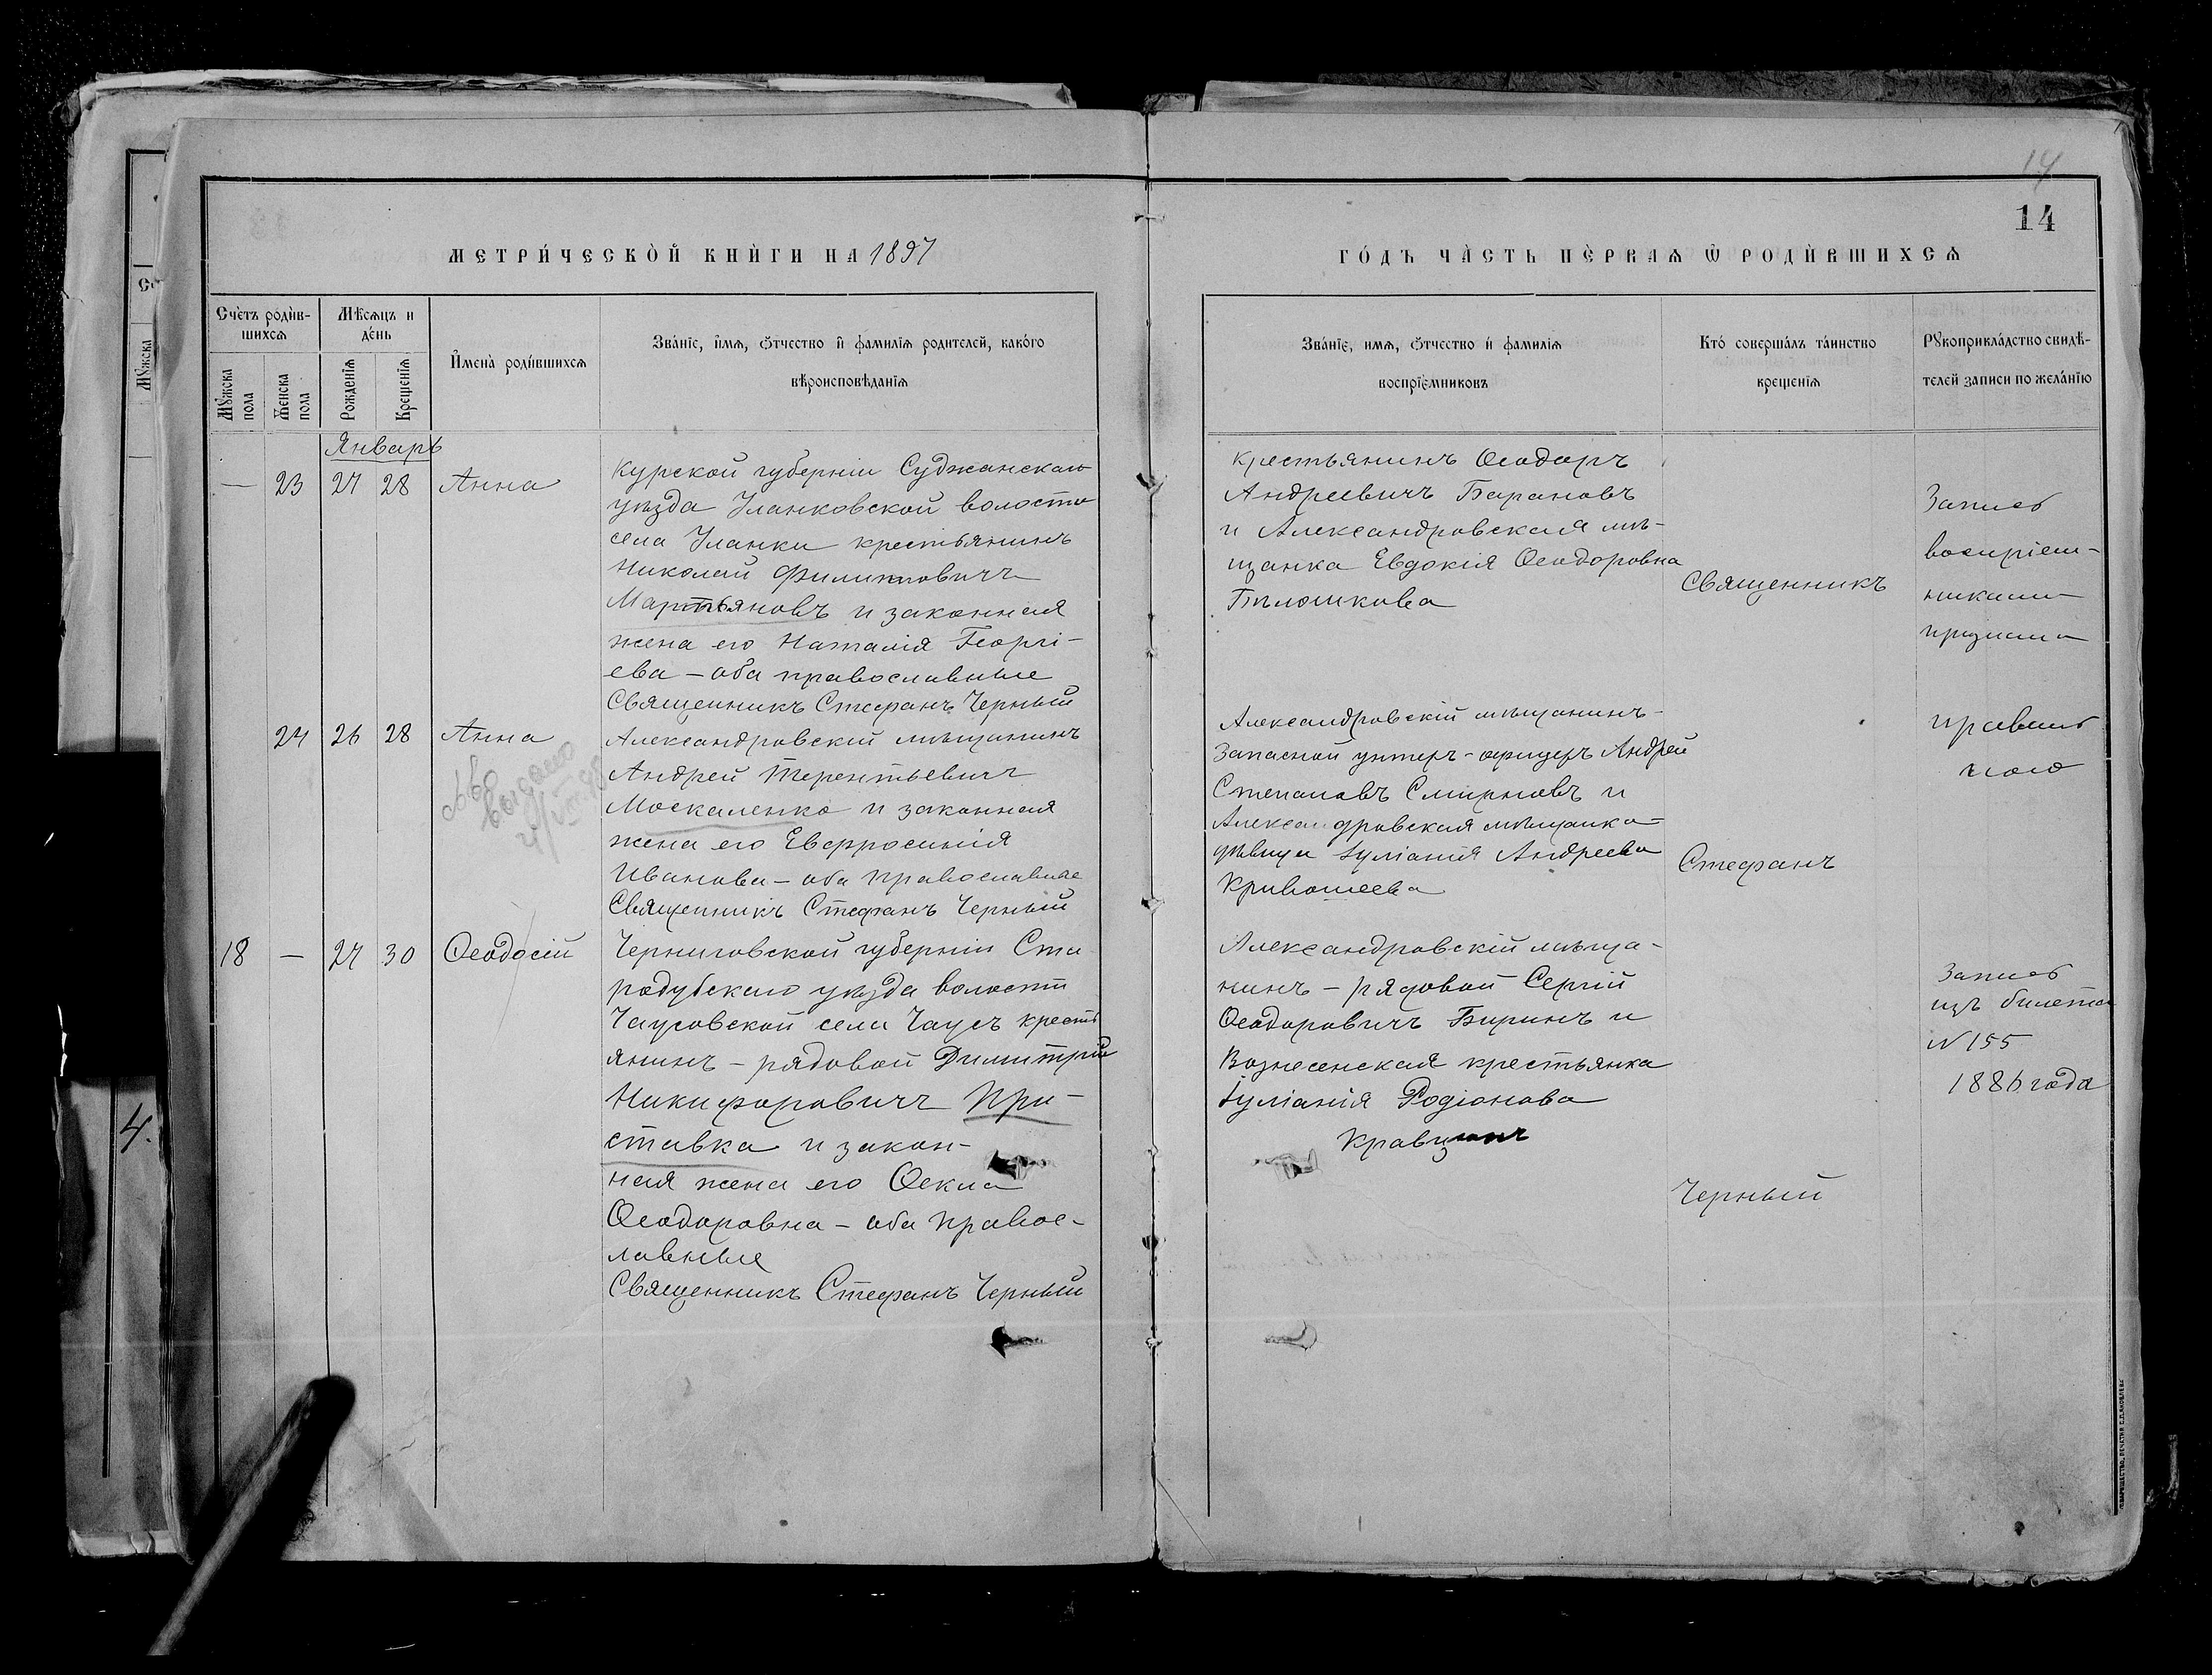 14
14
МЕТРИ́ЧЕСКО́Й КНИ́ГИ НА 1897
ГО́ДЪ ЧА́СТЬ ПЕ́РВАЯ Ѡ РОДИ́ВШИХСЯ
Сче́тъ роди́в-
шихся
Му́жска
пола
Же́нска
пола
Мѣ́сяцъ и
де́нь
Рожде́нїя
Креще́нїя
И҆мена̀ роди́вшихся
Зва́нїе, и҆́мя, ѻ҆́тчество и҆ фами́лїя роди́телей, како́го
вѣроисповѣ́данїя
Зва́нїе, имя, ѻ҆́тчество и҆ фами́лїя
воспрїе́мниковъ
Кто́ соверша́лъ та́инство
креще́нїя
Рꙋкоприкла́дство свидѣ́-
телей записи по жела́нїю
Январь
— 23 27 28 Анна
Курской губерніи Суджанскаго
уѣзда Уланковской волости
села Уланки крестьянинъ
Николай Филипповичъ
Мартьяновъ и законная
жена его Наталія Георгі-
ева – оба православные
Священникъ Стефанъ Черный
крестьянинъ Ѳеодоръ
Андреевичъ Барановъ
и Александровская мѣ-
щанка Евдокія Ѳеодоровна
Бѣлошкова
Священникъ
Запись
воспріем-
никами
24 26 28 Анна
Александровскій мѣщанинъ
Андрей Терентьевичъ
Москаленко и законная
жена его Евфросинія
Иванова – оба православные
Священникъ Стефанъ Черный
Александровскій мѣщанинъ-
Запасной унтеръ-офицеръ Андрей
Степановъ Смирновъ и
Александровская мѣщанка-
дѣвица Іуліанія Андреева
Кривошеева
Стефанъ
18 — 27 30 Ѳеодосій
Черниговской губерніи Ста
родубскаго уѣзда волости
Чаусовской села Чаусъ кресть
янинъ – рядовой Димитрій
Никифоровичъ При-
ставка и закон-
ная жена его Ѳекла
Ѳеодоровна – оба правос-
лавные
Священникъ Стефанъ Черный
Александровскій мѣща-
нинъ – рядовой Сергій
Ѳеодоровичъ Биринъ и
Вознесенская крестьянка
Іуліанія Родіонова
Черный
Запись
изъ билета
N 155
1886 года
4.